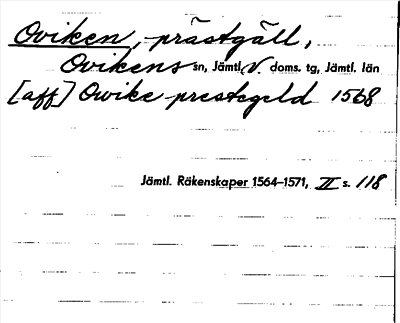 Oviken, prästgäll,
Ovikens sn, Jämtl. V. doms. tg, Jämtl. län
[aff] Owike prestegeld 1568
Jämtl. Räkenskaper 1564–1571, II s. 118